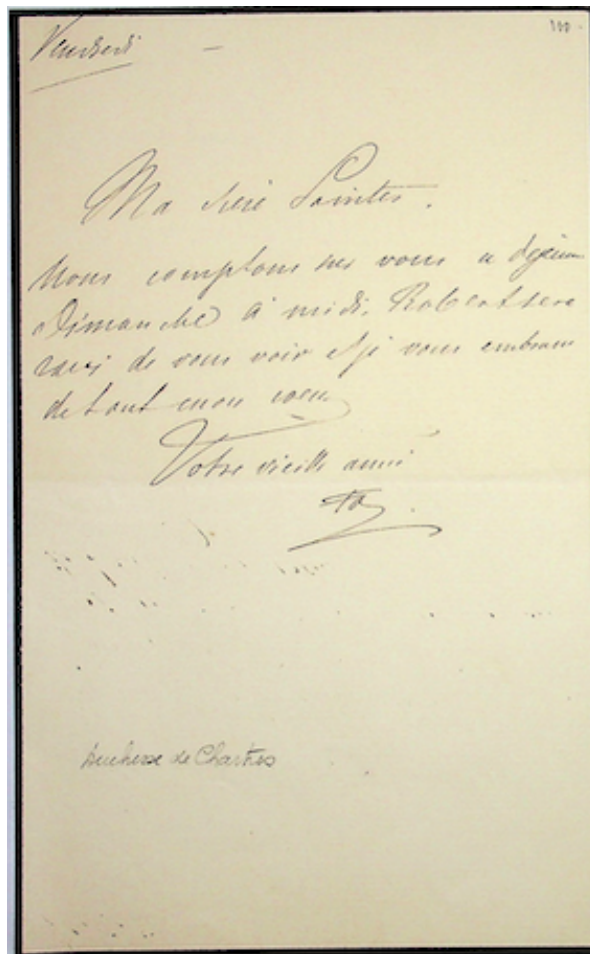 Vendredi —
100
Ma chère
Nous comptons sur vous a déjeuner
Dimanche à midi. Robert sera
ravi de vous voir et je vous embrasse
de tout mon coeur
Votre vieille amie
Duchesse de Chartres